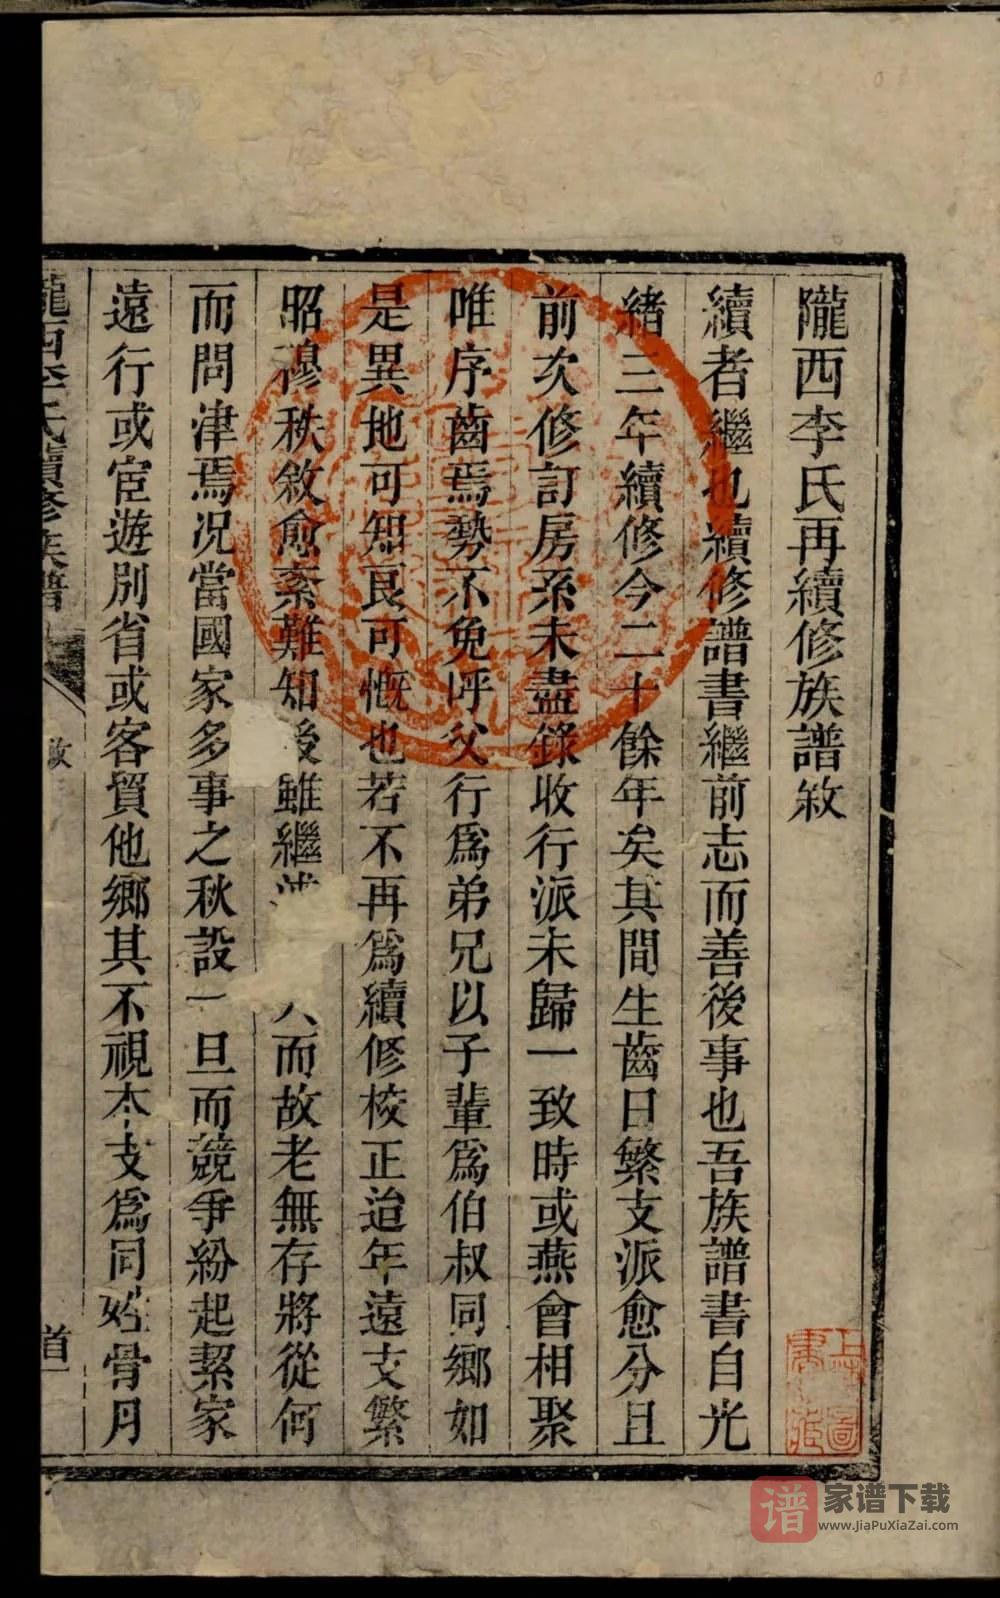 隴西李氏再續修族譜敘
續者繼也續修譜書繼前志而善後事也吾族譜書自光
緒三年續修今二十餘年矣其間生齒日繁支派愈分且
前次修訂房系未盡錄收行派未歸一致時或燕會相聚
唯序齒焉勢不免呼父行為弟兄以子輩為伯叔同鄉如
是異地可知良可慨也若不再為續修校正迨年遠支繁
昭穆秩敘愈紊難知後雖繼 人而故老無存將從何
而問津焉況當國家多事之秋設一旦而競爭紛起絜家
遠行或宦遊別省或客貿他鄉其不視本支為同姓骨月
隴西李氏續修族譜
敘
首
上 圖
書 藏
譜
家谱下载
www.JiaPuXiaZai.com